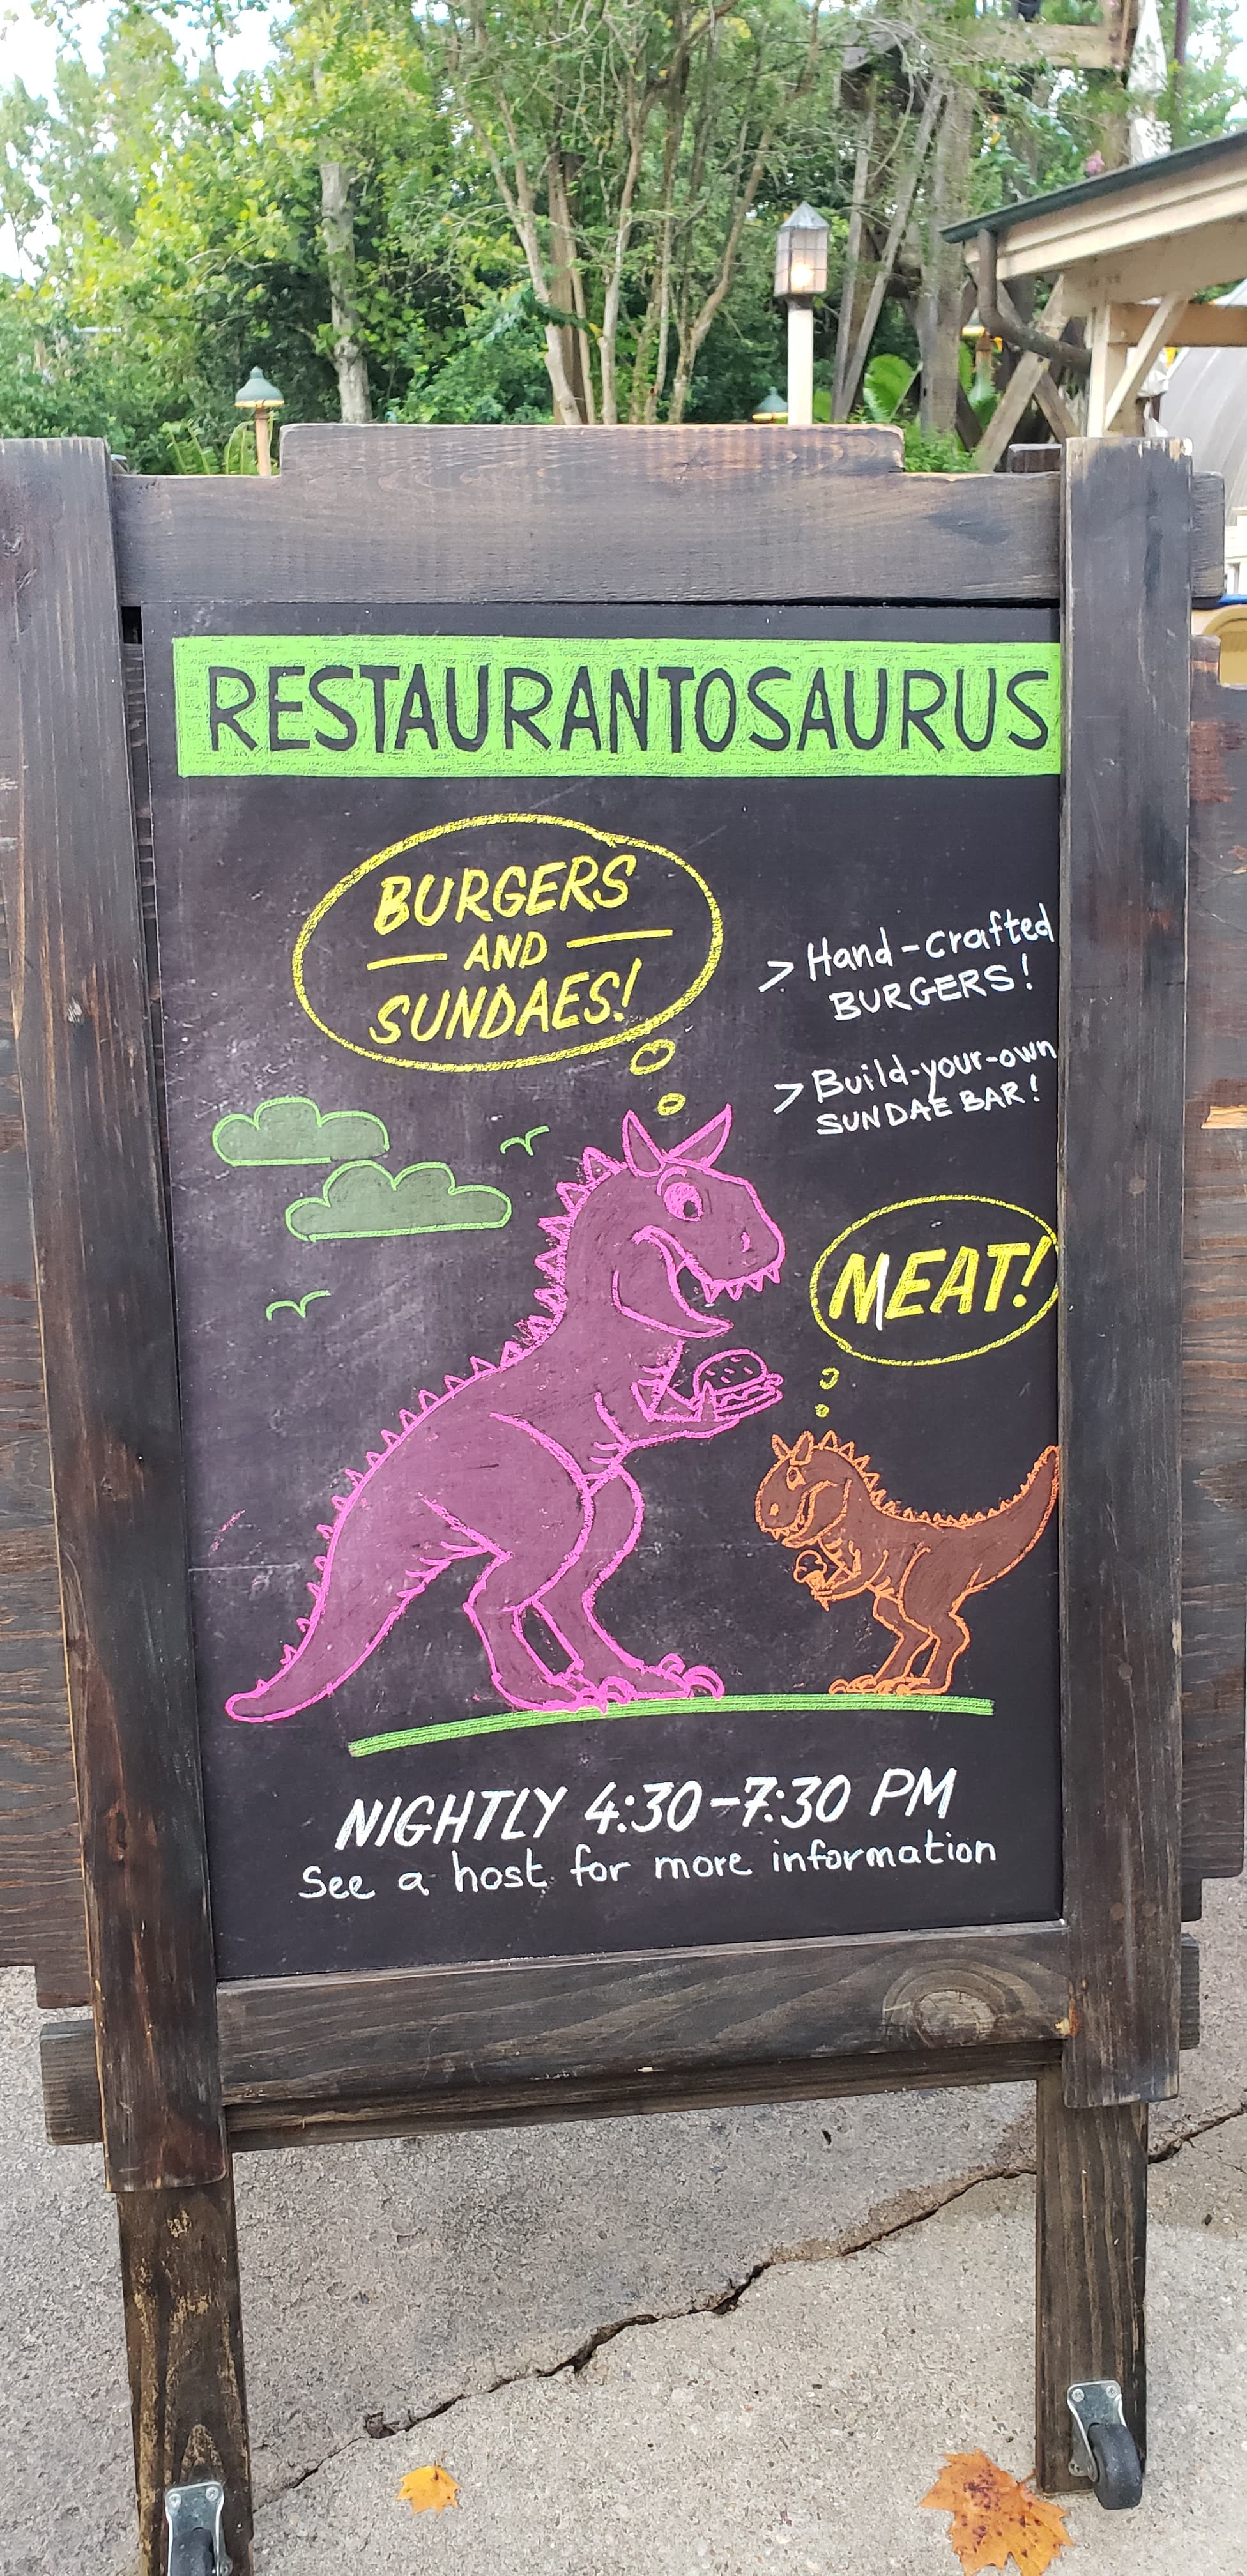 RESTAURANTOSAURUS
BURGERS
AND
SUNDAES!
> Hand-crafted
BURGERS!
> Build-your-own
SUNDAE BAR!
MEAT!
NIGHTLY 4:30-7:30 PM
See a host for more information